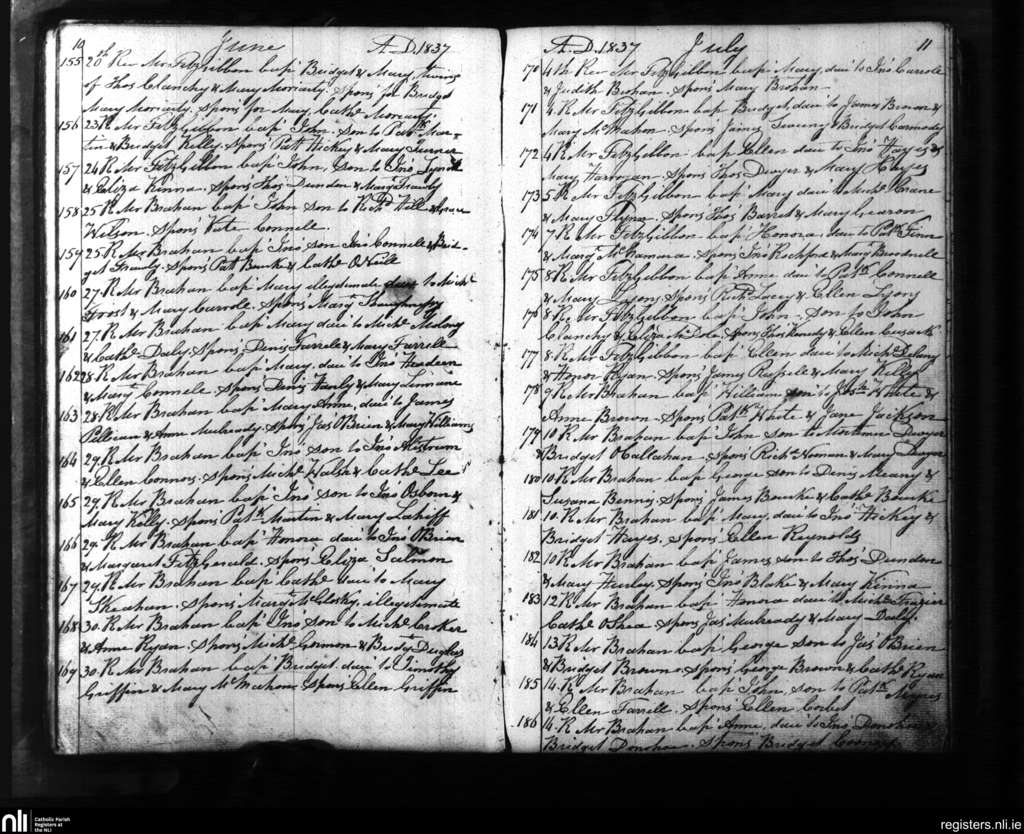 10 June A.D. 1837
155 20th Rev Mr FitzGibbon bap' Bridget & Mary, twins
of Thos Clanchy & Mary Moriarty. Spons' for Bridget
Mary Moriarty. Spons' for Mary Cathe Moriarty
156 23 R Mr FitzGibbon bap' John. Son to Patt Mar-
tin & Bridget Kelly. Spons' Patt Hickey & Mary Turner
157 24 R Mr FitzGibbon bap' John, Son to Jno Lynch
& Eliza Kinna. Spons Thos Dundon & Mary Frawly
158 25 R Mr Brahan bap' John son to Richd Hill &
Wilson. Spons' Kate Connell.
159 25 R Mr Brahan bap' Jno son Jno Connell & Brid-
get Frawly. Spons' Patt Burke & Cathe O'Neill
160 27. R Mr Brahan bap' Mary illegitimate daur to Miche
Frost & Mary Carroll. Spons' Margt
161 27. R Mr Brahan bap' Mary daur to Miche Molony
& Cathe Daly. Spons' Denis Farrell & Mary Farrell
162 28 R Mr Brahan bap' Mary, daur to Jno Headen
& Margt Connell. Spons' Denis Hanly & Mary Linnane
163 28. R Mr Brahan bap' Mary Anne, daur to James
Sullivan & Anne Mulready. Spons' Jas O'Brien & Mary Williams
164 29. R Mr Brahan bap' Jno son to Jno
& Ellen Connors. Spons' Miche Walsh & Cathe Lee
165 29. R Mr Brahan bap' Jno son to Jno Osborn &
Mary Kelly. Spons' Patk Martin & Mary Lahiff
166 29. R Mr Brahan bap' Honora daur to Jno O'Brien
& Margaret FitzGerald. Spons' Eliza Salmon
167 29. R Mr Brahan bap' Cathe daur to Mary
Skeahan. Spons' Margt McClosky. illegitimate
168 30. R Mr Brahan bap' Jno son to Miche Croker
& Anne Ryan. Spons' Miche Gorman & Bridgt Hughes
169 30. R Mr Brahan bap' Bridget. daur to Timothy
Griffin & Mary McMahon. Spons' Ellen Griffin
A.D. 1837 July 11
170 4th Rev Mr FitzGibbon bap' Mary, daur to Jno Carroll
& Judith Brohan. Spons' Mary Brohan.
171 4. R Mr FitzGibbon bap' Bridget, daur to James Brown &
Mary McMahon. Spons' James & Bridget Carmody
172 4 R Mr FitzGibbon bap' Ellen daur to Jno Hayes &
Mary Hannan. Spons' Thos Dwyer & Mary Hayes
173 5 R Mr FitzGibbon bap' Mary daur to Miche Crane
& Mary Flynn. Spons Thos Barrett & Mary Gearon
174 7 R Mr FitzGibbon bap' Honora, daur to Patk Finn
& Margt McNamara. Spons' Jno Rochford & Mary
175 8 R Mr FitzGibbon bap' Anne daur to Patk Connell
& Mary Lyons Spons Richd Lacey & Ellen Lyons
176 8 R Mr FitzGibbon bap' John. son to John
Clanchy & Eliza Spons' Thos & Ellen Cusack
177 8 R Mr FitzGibbon bap' Ellen daur to Miche
& Honor Ryan. Spons' James Russell & Mary Kelly
178 9 R Mr Brahan bap' William son to White &
Anne Brown. Spons Patk White & Jane Jackson
179 10 R Mr Brahan bap' John son to Mortimer Dwyer
& Bridget OCallaghan. Spons Richd Noonan & Mary Dwyer
180 10 R Mr Brahan bap' George son to Denis Meany &
Susana Bennis, Spons' James Bourke & Cathe Bourke
181 10. R Mr Brahan bap' Mary, daur to Jno Hickey &
Bridget Hayes, Spons' Ellen Reynolds
182 10 R Mr Brahan bap' James son to Thos Dundon
& Mary Hurley. Spons Jno Blake & Mary Kinna
183 12 R Mr Brahan bap' Honora daur to Miche Frazier
Cathe O'Shea. Spons Jas Mulready & Mary Daly.
184 13 R Mr Brahan bap' George son to Jas O'Brien
& Bridget Brown. Spons' George Brown & Cathe Ryan
185 14. R Mr Brahan bap' John, son to Patk
& Ellen Farrell. Spons Ellen Corbet
186 14. R Mr Brahan bap' Anne, daur to Jno Donohue &
Bridget Donohue. Spons' Bridget Cooney
nli Catholic Parish
Registers at
the NLI
registers.nli.ie